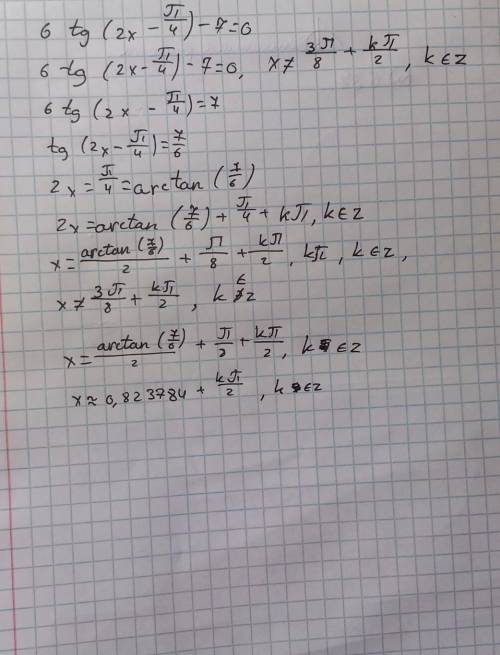 6 tg (2x − П/4) − 7 = 0
6 tg (2x − П/4) − 7 = 0, x ≠ 3П/8 + kП/2, k ∈ z
6 tg (2x − П/4) = 7
tg (2x − П/4) = 7/6
2x = П/4 = arctan (7/6)
2x = arctan (7/6) + П/4 + kП, k ∈ z
x = arctan (7/6)/2 + П/8 + kП/2, kП, k ∈ z,
x ≠ 3П/8 + kП/2, k ∈ z
x = arctan (7/6)/2 + П/2 + kП/2, k ∈ z
x ≈ 0,823784 + kП/2, k ∈ z